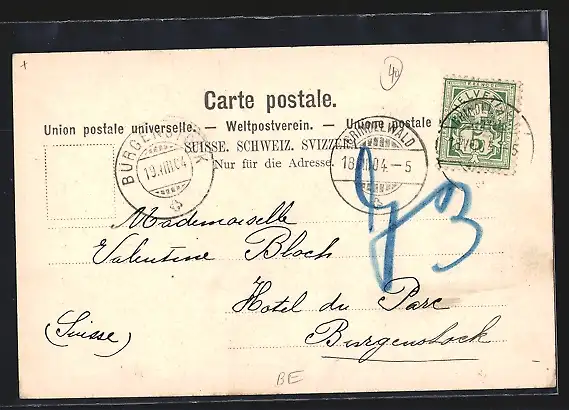 40
Carte postale.
Union postale universelle. — Weltpostverein. — Unione postale
SUISSE. SCHWEIZ. SVIZZERA.
Nur für die Adresse.
HELVETIA
BÜRGENSTOCK
19.VIII.04
GRINDELWALD
18.VIII.04.-5
Mademoiselle
Valentine Bloch
Hotel du Parc
(Suisse)
Burgenstock
BE